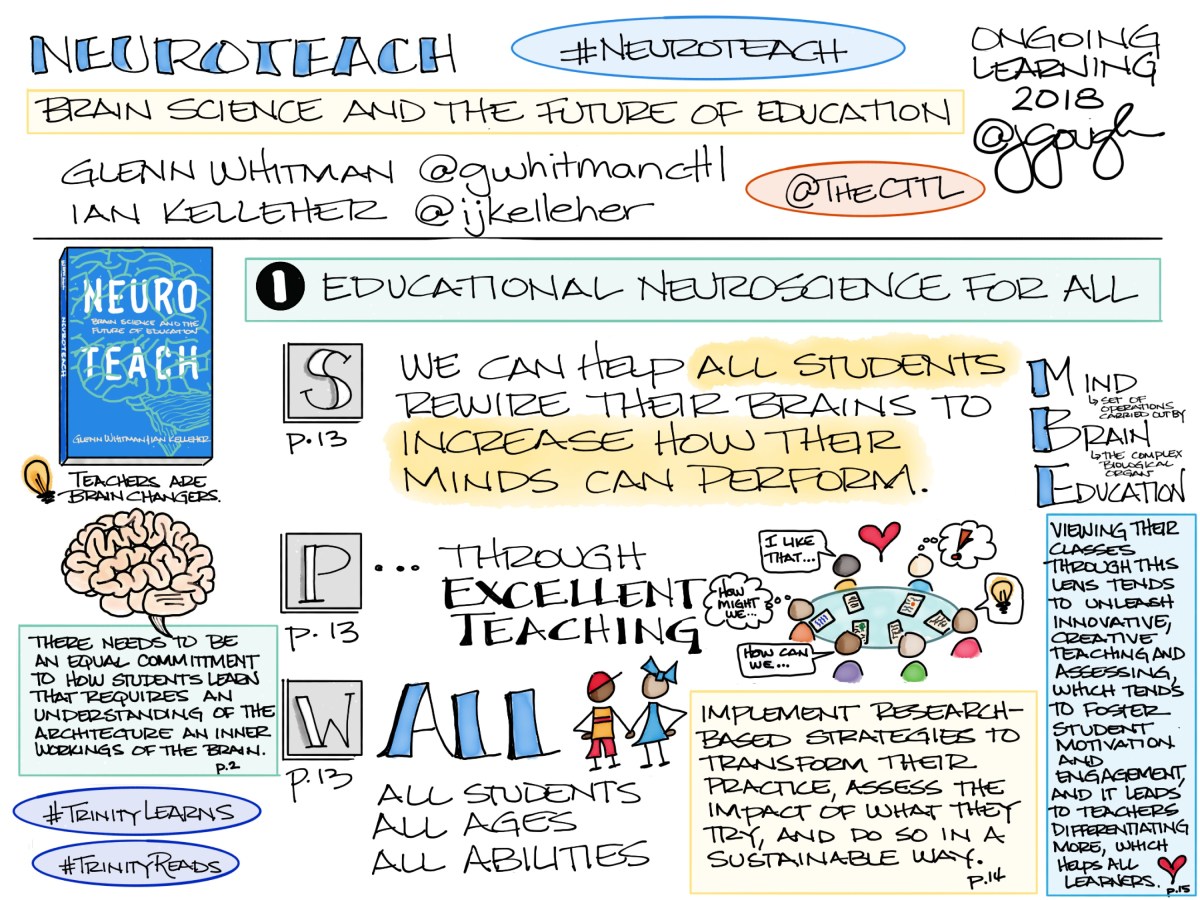 NEUROTEACH
#NEUROTEACH
ONGOING
LEARNING
2018
@jgough
BRAIN SCIENCE AND THE FUTURE OF EDUCATION
GLENN WHITMAN @gwhitmancttl
IAN KELLEHER @ijkelleher
@THECTTL
NEURO
BRAIN SCIENCE AND THE
FUTURE OF EDUCATION
TEACH
GLENN WHITMAN/IAN KELLEHER
NEUROTEACH
TEACHERS ARE
BRAIN CHANGERS.
1 EDUCATIONAL NEUROSCIENCE FOR ALL
S
p.13
WE CAN HELP ALL STUDENTS
REWIRE THEIR BRAINS TO
INCREASE HOW THEIR
MINDS CAN PERFORM.
MIND
↳ SET OF
OPERATIONS
CARRIED OUT BY
BRAIN
↳ THE COMPLEX
BIOLOGICAL
ORGAN
EDUCATION
THERE NEEDS TO BE
AN EQUAL COMMITTMENT
TO HOW STUDENTS LEARN
THAT REQUIRES AN
UNDERSTANDING OF THE
ARCHITECTURE AN INNER
WORKINGS OF THE BRAIN.
p.2
P
p.13
... THROUGH
EXCELLENT
TEACHING
I LIKE
THAT...
!
HOW
MIGHT
WE...
HOW CAN
WE...
W
p.13
ALL
ALL STUDENTS
ALL AGES
ALL ABILITIES
IMPLEMENT RESEARCH-
BASED STRATEGIES TO
TRANSFORM THEIR
PRACTICE, ASSESS THE
IMPACT OF WHAT THEY
TRY, AND DO SO IN A
SUSTAINABLE WAY.
p.14
VIEWING THEIR
CLASSES
THROUGH THIS
LENS TENDS
TO UNLEASH
INNOVATIVE,
CREATIVE
TEACHING AND
ASSESSING,
WHICH TENDS
TO FOSTER
STUDENT
MOTIVATION
AND
ENGAGEMENT,
AND IT LEADS
TO TEACHERS
DIFFERENTIATING
MORE, WHICH
HELPS ALL
LEARNERS.
p.15
#TRINITYLEARNS
#TRINITYREADS